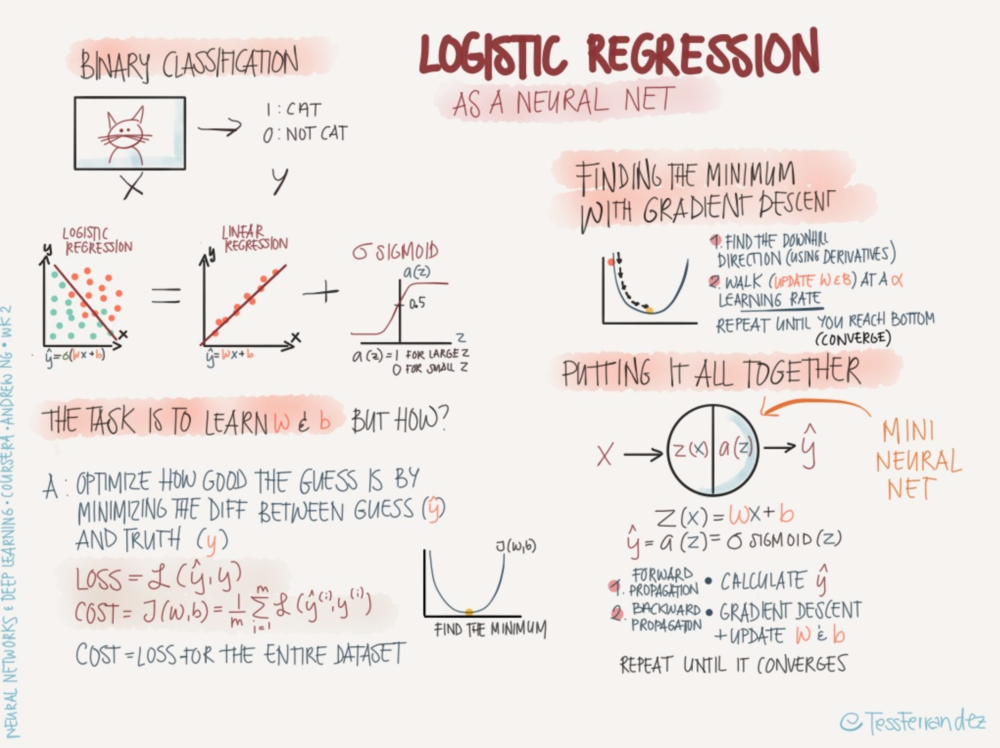 LOGISTIC REGRESSION
AS A NEURAL NET
BINARY CLASSIFICATION
1: CAT
0: NOT CAT
X
Y
LOGISTIC
REGRESSION
y
x
ŷ=σ(wx+b)
=
LINEAR
REGRESSION
y
x
ŷ=wx+b
+
σ SIGMOID
a(z)
0.5
z
a(z)=1 FOR LARGE Z
0 FOR SMALL Z
THE TASK IS TO LEARN w & b BUT HOW?
A: OPTIMIZE HOW GOOD THE GUESS IS BY
MINIMIZING THE DIFF BETWEEN GUESS (ŷ)
AND TRUTH (y)
LOSS = ℒ(ŷ,y)
COST = J(w,b) = 1/m Σ_{i=1}^{m} ℒ(ŷ^(i),y^(i))
COST = LOSS FOR THE ENTIRE DATASET
J(w,b)
FIND THE MINIMUM
FINDING THE MINIMUM
WITH GRADIENT DESCENT
1. FIND THE DOWNHILL
DIRECTION (USING DERIVATIVES)
2. WALK (UPDATE W & B) AT A α
LEARNING RATE
REPEAT UNTIL YOU REACH BOTTOM
(CONVERGE)
PUTTING IT ALL TOGETHER
X
z(x)
a(z)
ŷ
MINI
NEURAL
NET
Z(x) = wx+b
ŷ = a(z) = σ SIGMOID(z)
1. FORWARD
PROPAGATION • CALCULATE ŷ
2. BACKWARD
PROPAGATION • GRADIENT DESCENT
+ UPDATE w & b
REPEAT UNTIL IT CONVERGES
NEURAL NETWORKS & DEEP LEARNING • COURSERA • ANDREW NG • WK 2
@TessFerrandez